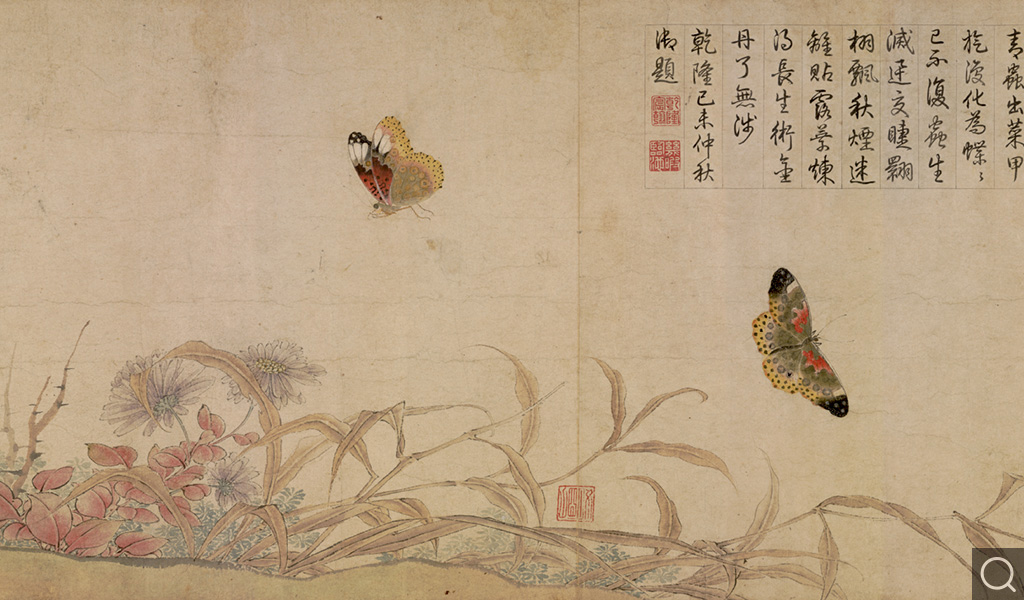 青蟲出菜甲
旋復化為蝶〻
已不復蟲生
滅迅交睫翾
栩飄秋煙迷
離貼露葉煉
得長生術金
丹了無涉
乾隆己未仲秋
御題